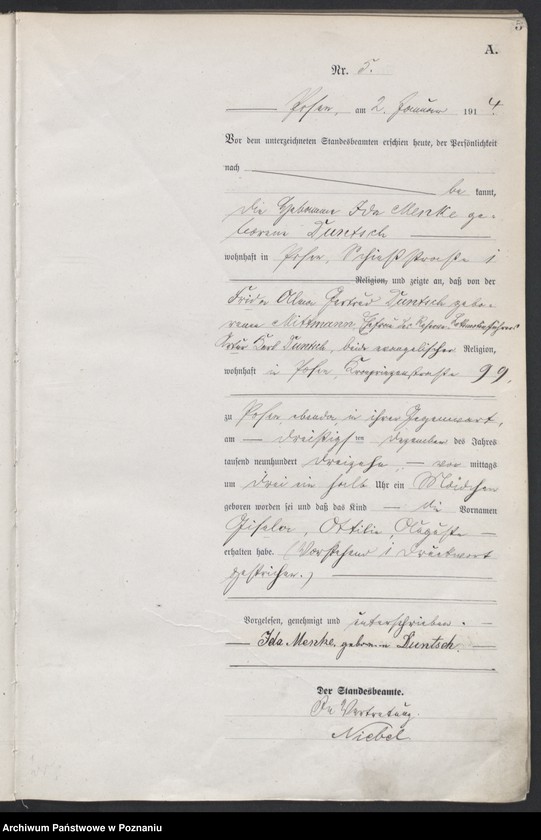 A.
Nr. 5.
Posen, am 2. Januar 1914.
Vor dem unterzeichneten Standesbeamten erschien heute, der Persönlichkeit
nach
be kannt,
die Hebamme Ida Menke ge-
borene Duntsch
wohnhaft in Posen, Schießstraße 1
Religion, und zeigte an, daß von der
Frida Alma Gertrud Duntsch gebo-
renen Mittmann, Ehefrau des Reserve-Lokomotivführers
Karl Duntsch, beide evangelischer Religion,
wohnhaft in Posen, Kronprinzenstraße 99,
zu Posen ebenda, in ihrer Gegenwart,
am dreißigsten Dezember des Jahres
tausend neunhundert dreizehn vor mittags
um drei ein halb Uhr ein Mädchen
geboren worden sei und daß das Kind die Vornamen
Gisela, Ottilie, Auguste
erhalten habe. (Vorstehend 1 Druckwort
gestrichen.)
Vorgelesen, genehmigt und unterschrieben.
Ida Menke, geboren Duntsch.
Der Standesbeamte.
In Vertretung.
Niebel
Archiwum Państwowe w Poznaniu